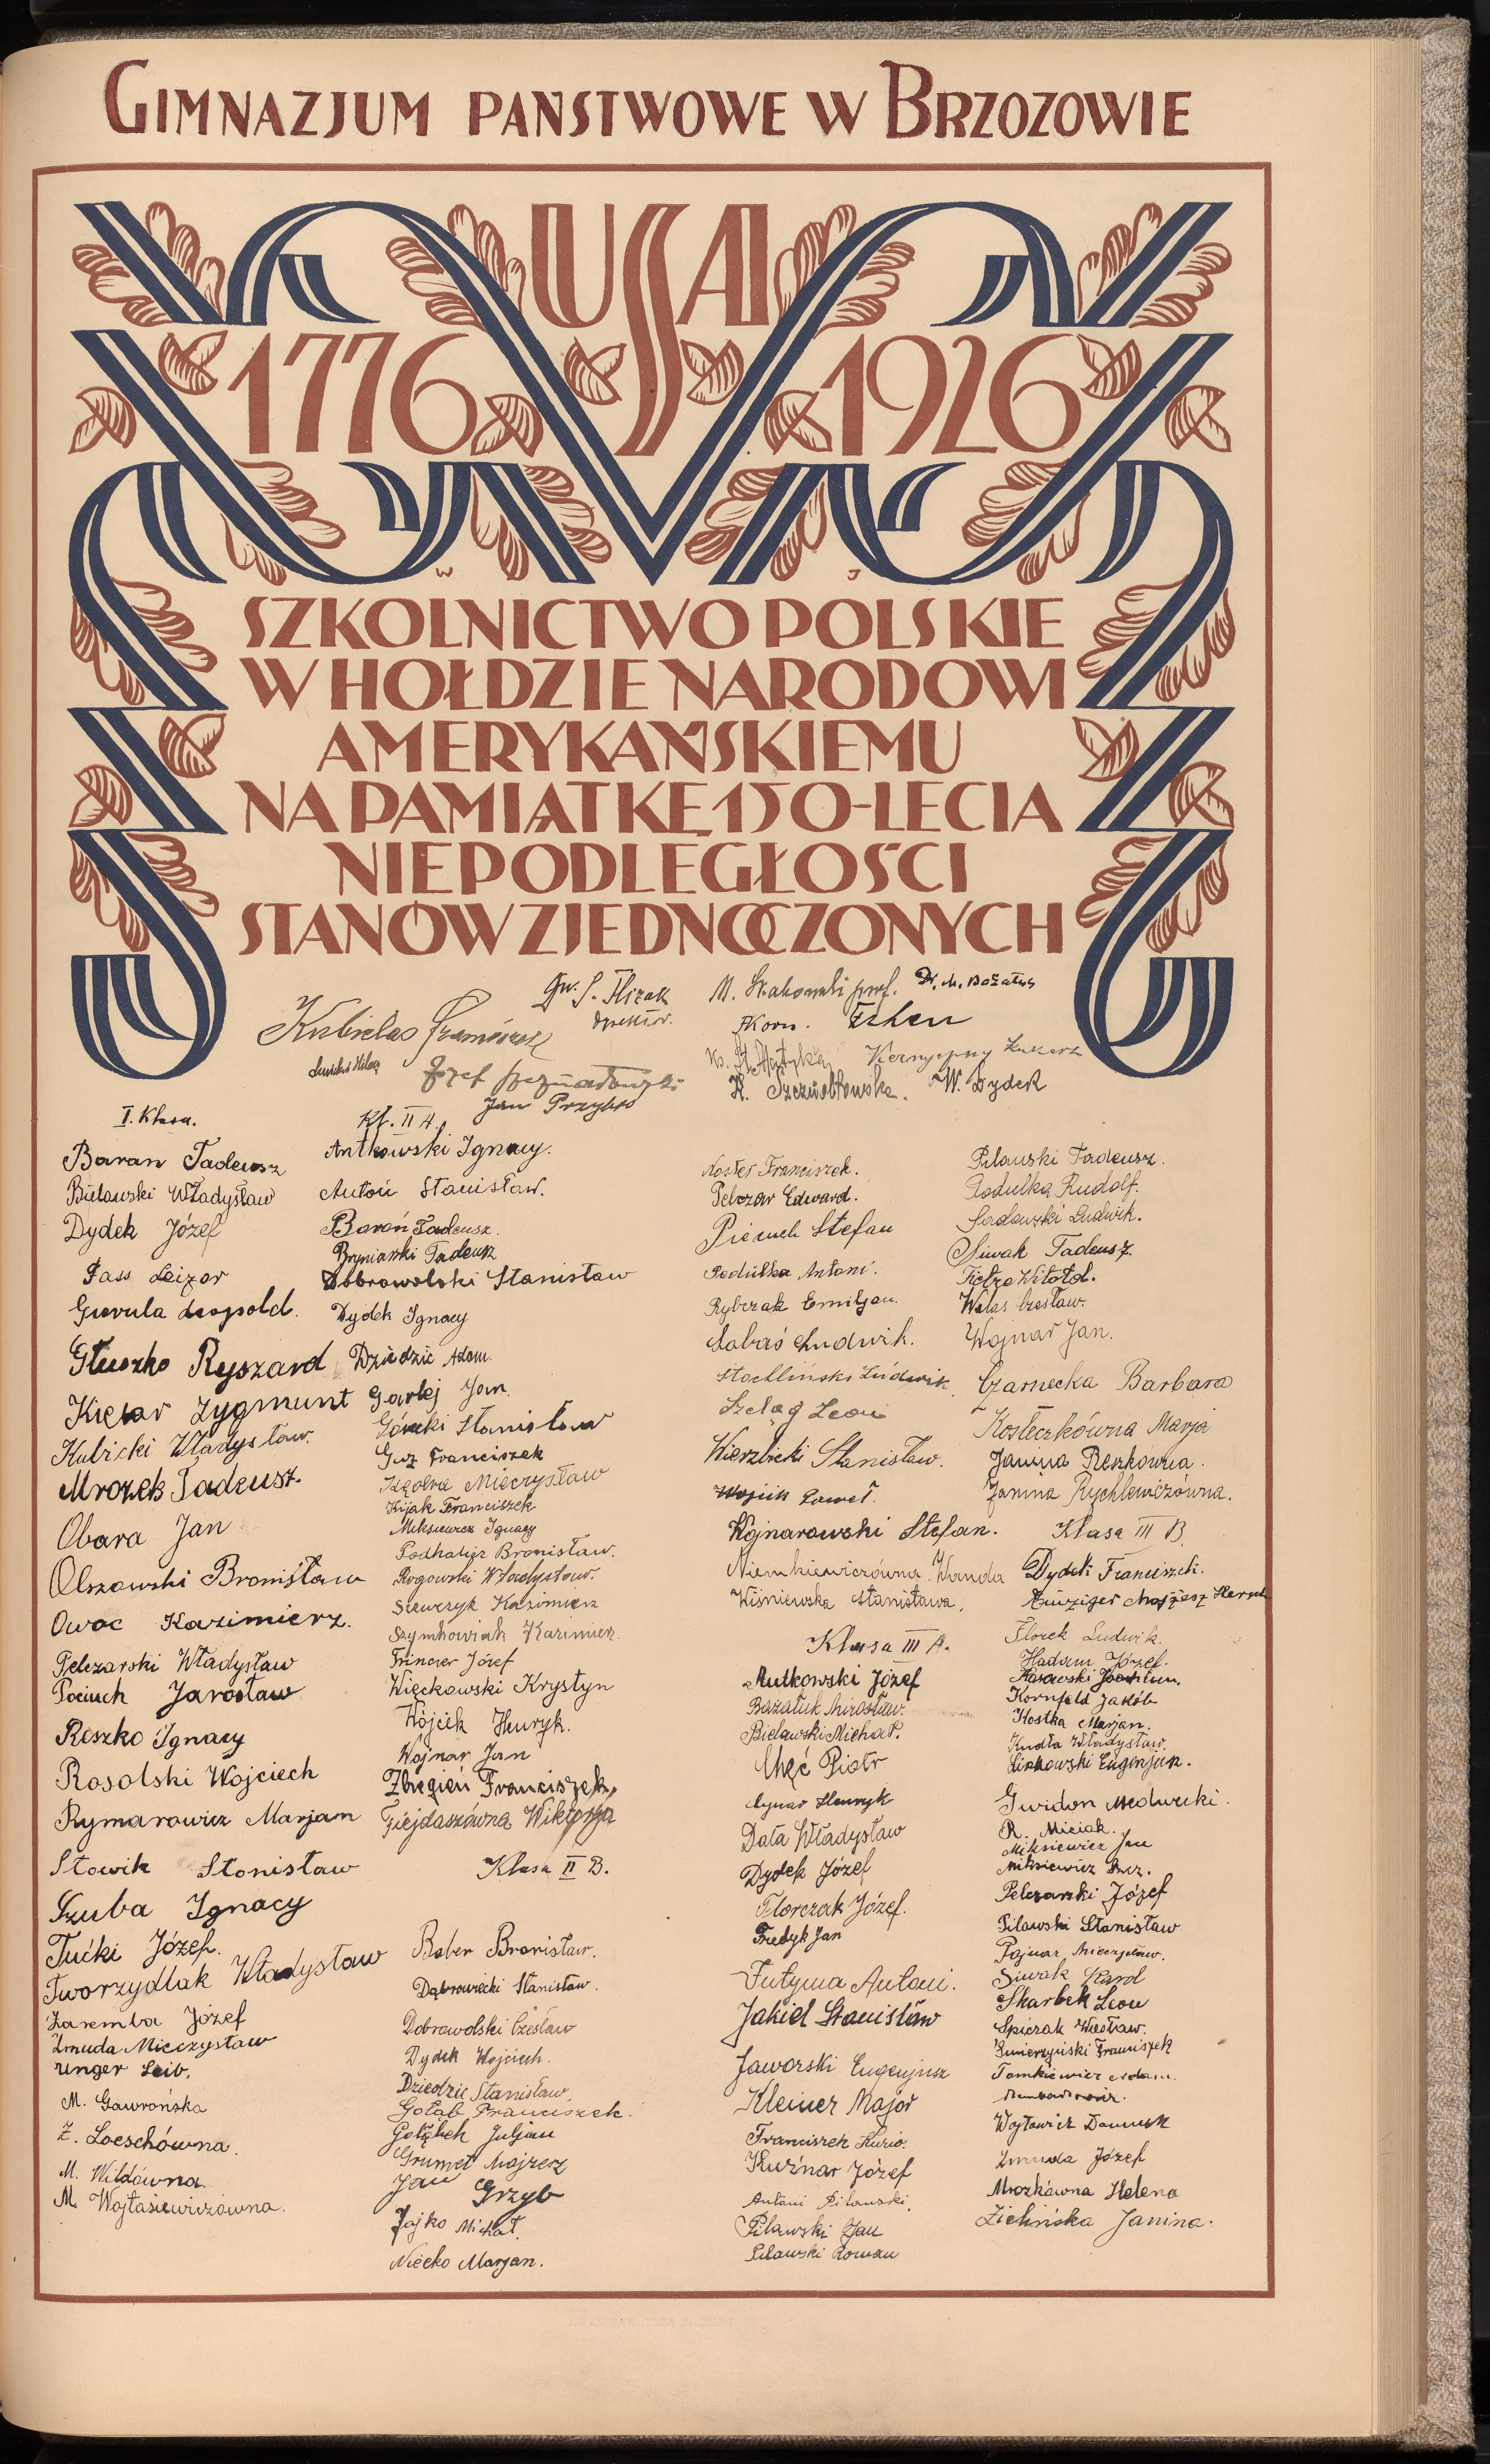 GIMNAZJUM PAŃSTWOWE W BRZOZOWIE
USA
1776 1926
W J
SZKOLNICTWO POLSKIE
W HOŁDZIE NARODOWI
AMERYKAŃSKIEMU
NA PAMIĄTKĘ 150-LECIA
NIEPODLEGŁOŚCI
STANÓW ZJEDNOCZONYCH
dyrektor.
Kubielas Franciszek
Józef
Jan Przybyś
prof. Dr. M. Bażałuk
AKorn.
Ks.
K. Szczubełowska. W. Dydek
I. Klasa.
Baran Tadeusz
Bielawski Władysław
Dydek Józef
Fass Leizor
Gierula Leopold.
Głuszko Ryszard
Kięłar Zygmunt
Kubicki Władysław.
Mrozek Tadeusz.
Obara Jan
Olszowski Bronisław
Owoc Kazimierz.
Pelczarski Władysław
Pociuch Jarosław
Reszko Ignacy
Rosolski Wojciech
Rymarowicz Marjam
Słowik Stanisław
Szuba Ignacy
Tućki Józef.
Tworzydlak Władysław
Zaremba Józef
Żmuda Mieczysław
Unger Leib.
M. Gawrońska
Z. Loeschówna.
M. Wildówna.
M. Wojtasiewiczówna.
Kl. II A.
Antkowski Ignacy.
Antoń Stanisław.
Baroń Tadeusz.
Bryniarski Tadeusz
Dobrowolski Stanisław
Dydek Ignacy
Dziedzic Adam.
Garlej Jan.
Górecki Stanisław
Guz Franciszek
Mieczysław
Kijak Franciszek
Miksiewicz Ignacy
Podkalicz Bronisław.
Rogowski Władysław.
Szewczyk Kazimierz
Szymkowiak Kazimierz
Trincer Józef
Więckowski Krystyn
Wójcik Henryk.
Wojnar Jan
Zbiegień Franciszek,
Fiejdaszówna Wiktorja
Klasa II B.
Bober Bronisław.
Dąbrowiecki Stanisław.
Dobrowolski Czesław
Dydek Wojciech.
Dziedzic Stanisław.
Gołąb Franciszek.
Gołąbek Juljan
Grumet Majzerz
Jan Grzyb
Jajko Michał.
Niećko Marjan.
Nostes Franciszek.
Pelczar Edward.
Pieniuch Stefan
Podulka Antoni.
Rybczak Emiljan.
Sabaś Ludwik.
Stochliński Ludwik
Szeląg Leon
Wierzbicki Stanisław.
Wojcik Paweł.
Wojnarowski Stefan.
Niemkiewiczówna Wanda
Wiśniewska Stanisława.
Klasa III A.
Antkowski Józef
Bażałuk Mirosław.
Bielawski Michał.
Chęć Piotr
Cynar Henryk
Data Władysław
Dydek Józef
Florczak Józef.
Fredyk Jan
Futyma Antoni.
Jakiel Stanisław
Jaworski Eugenjusz
Kleiner Major
Franciszek Kurio.
Kuźnar Józef
Antoni Pilawski.
Pilawski Jan
Pilawski Roman
Pilawski Tadeusz.
Podulka Rudolf.
Sadowski Ludwik.
Siwak Tadeusz.
Fietza Witold.
Welas Czesław.
Wojnar Jan.
Czarnecka Barbara
Kosteczkówna Marja
Janina Reszkówna.
Janina Rychlewiczówna.
Klasa III B.
Dydek Franciszek.
Einziger Mojżesz Hersch
Florek Ludwik.
Hadam Józef.
Kosowski Joachim.
Kornfeld Jakób
Kostka Marjan.
Kudła Władysław.
Liskowski Eugenjusz.
Gwidon Medwecki.
R. Miciak.
Miksiewicz Jan
Miksiewicz
Pelczarski Józef
Pilawski Stanisław
Pojnar Mieczysław.
Siwak Karol
Skarbek Leon
Spiczak Wiesław.
Śmierzyński Franciszek
Tomkiewicz Adam.
Wojtowicz Dominik
Żmuda Józef
Mrozkówna Helena
Zielińska Janina.